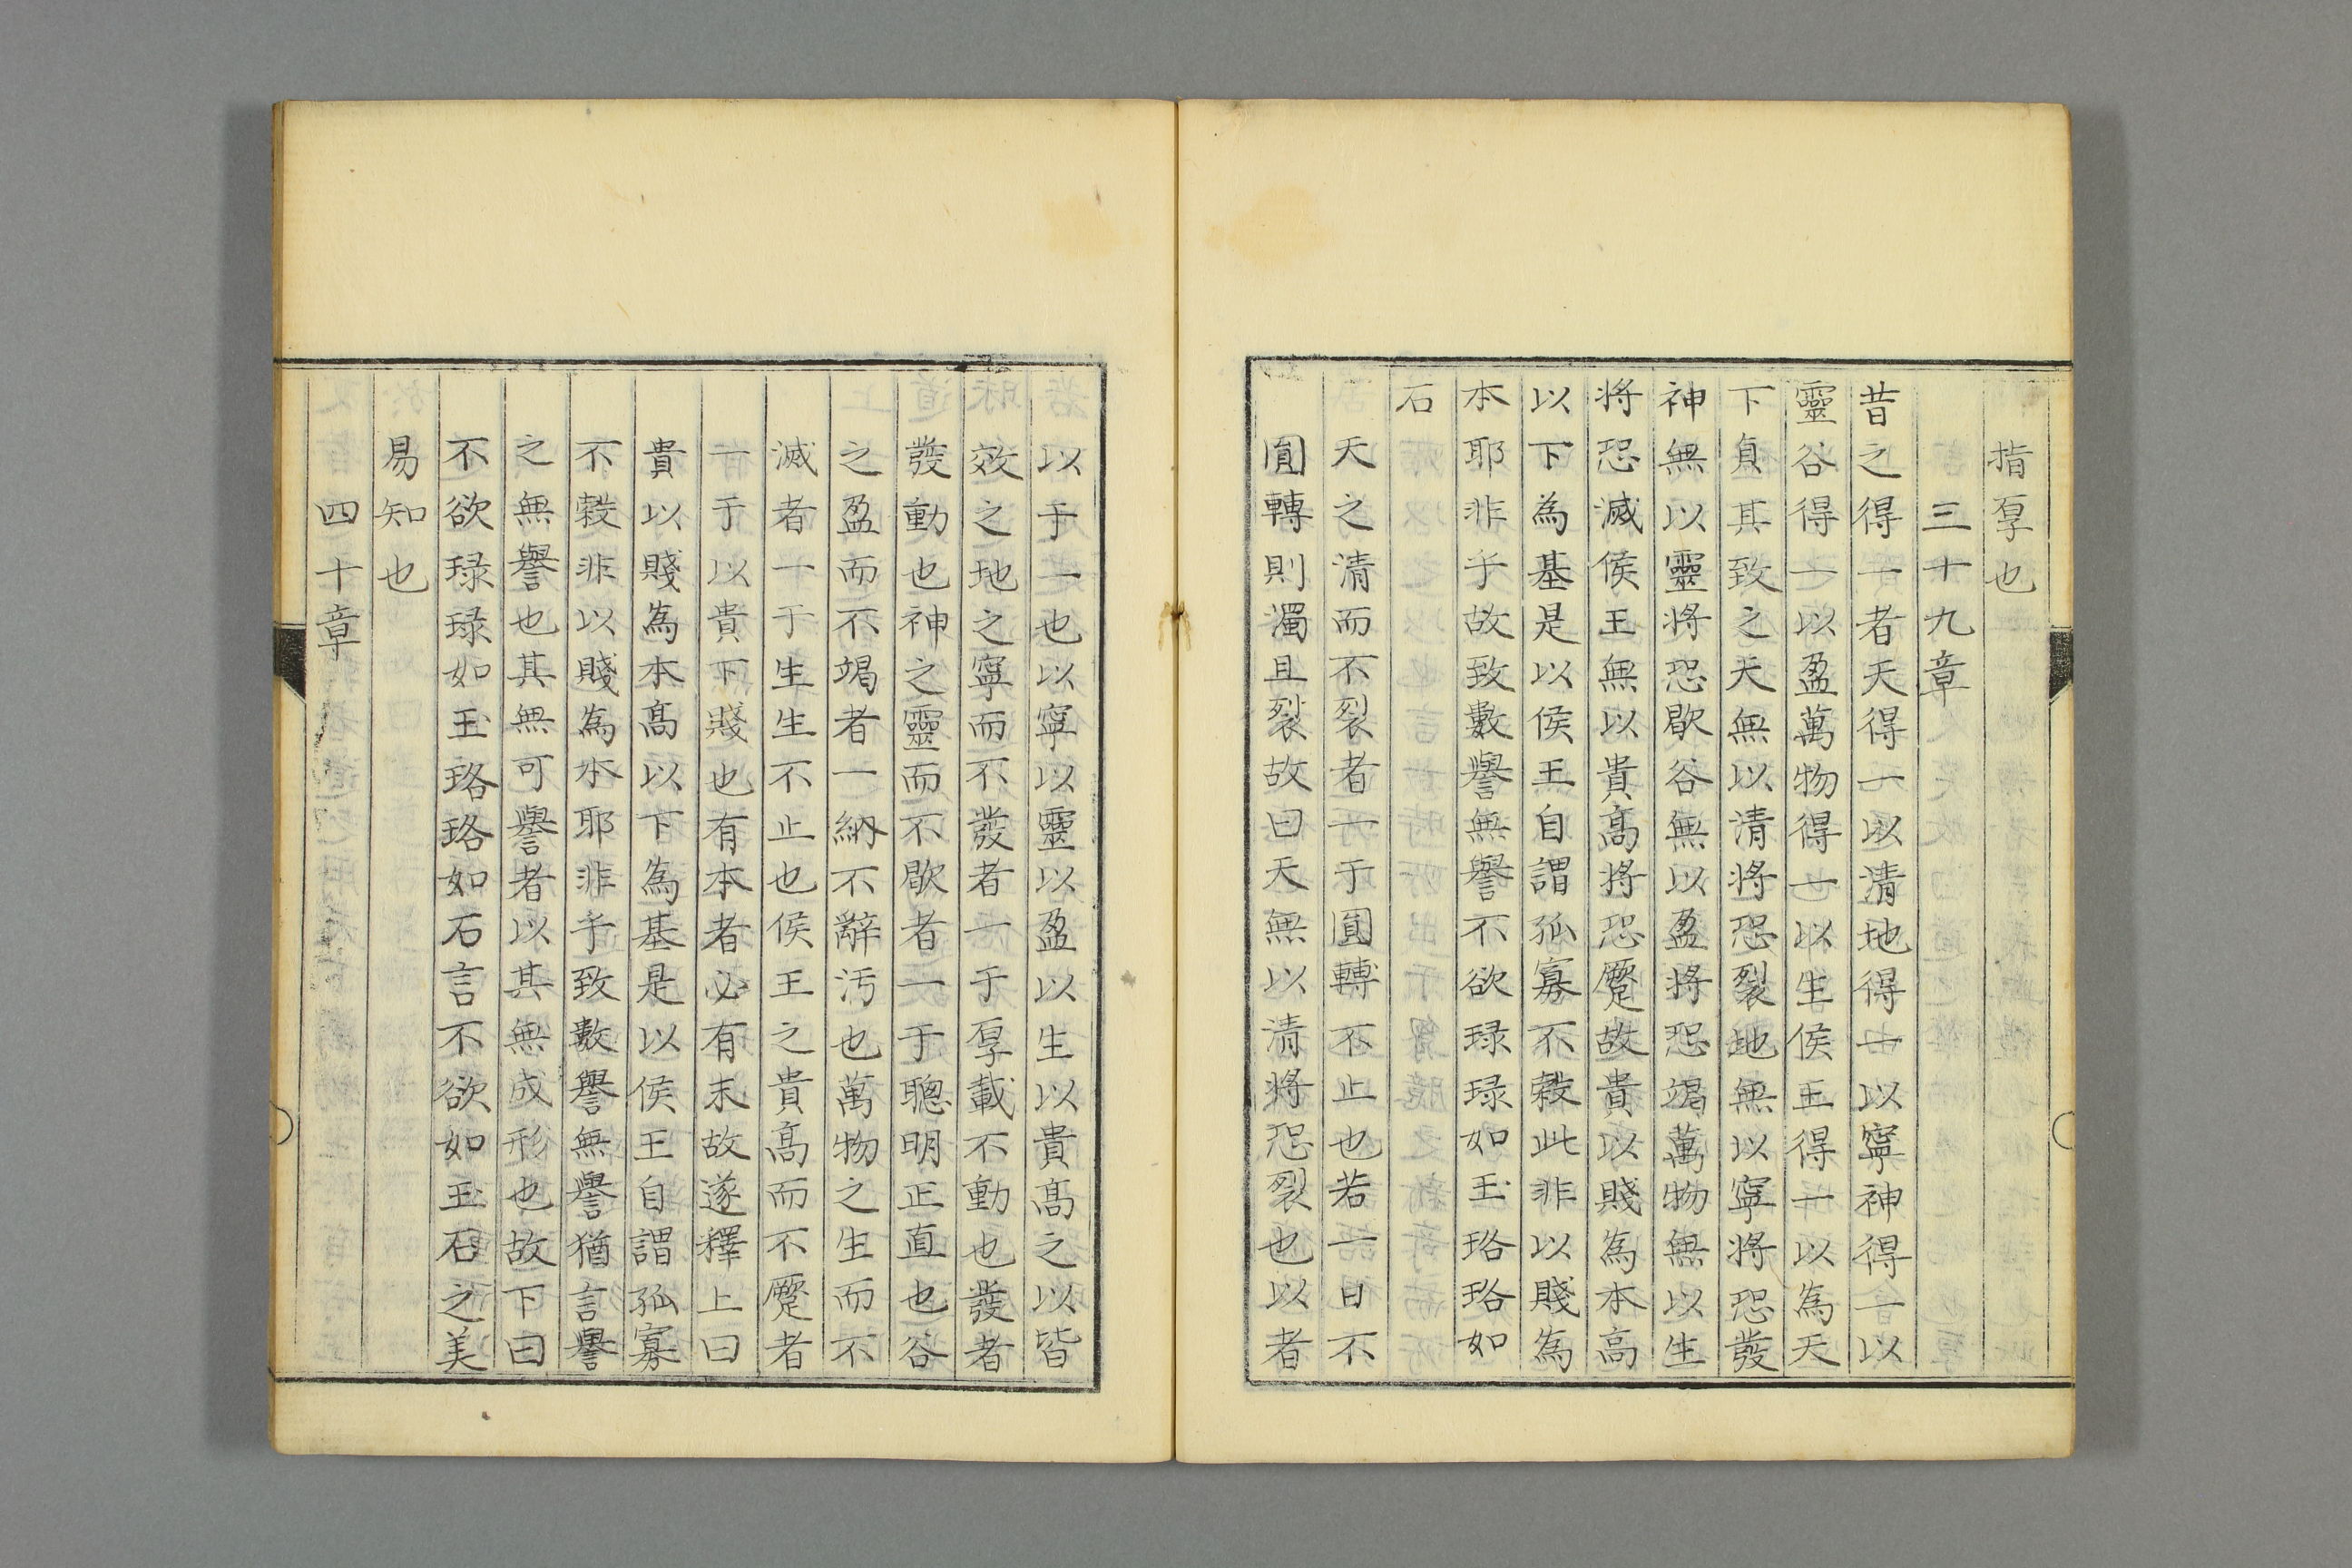 指厚也
三十九章
昔之得一者天得一以清地得一以寧神得一以
靈谷得一以盈萬物得一以生侯王得一以為天
下貞其致之天無以清將恐裂地無以寧將恐發
神無以靈將恐歇谷無以盈將恐竭萬物無以生
將恐滅侯王無以貴高將恐蹷故貴以賤為本高
以下為基是以侯王自謂孤寡不穀此非以賤為
本耶非乎故致數譽無譽不欲琭琭如玉珞珞如
石
天之清而不裂者一于圓轉不止也若一日不
圓轉則濁且裂故曰天無以清將恐裂也以者
以于一也以寧以靈以盈以生以貴高之以皆
效之地之寧而不發者一于厚載不動也發者
發動也神之靈而不歇者一于聰明正直也谷
之盈而不竭者一納不辭汚也萬物之生而不
滅者一于生生不止也侯王之貴高而不蹷者
一于以貴下賤也有本者必有末故遂釋上曰
貴以賤為本高以下為基是以侯王自謂孤寡
不穀非以賤為本耶非乎致數譽無譽猶言譽
之無譽也其無可譽者以其無成形也故下曰
不欲琭琭如玉珞珞如石言不欲如玉石之美
易知也
四十章